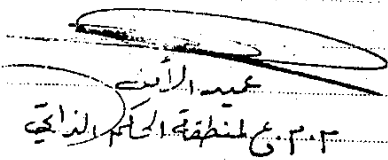 عميد الأمن
م.م.ع لمنطقة الحكم الذاتي